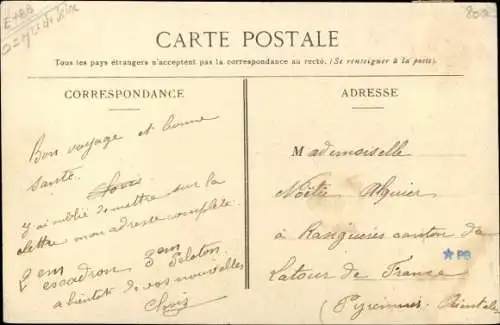 CARTE POSTALE
Tous les pays étrangers n'acceptent pas la correspondance au recto. (Se renseigner à la poste).
CORRESPONDANCE
Bon voyage et bonne
santé.
Louis
J'ai oublié de mettre sur la
lettre mon adresse complète.
2em
escadron 3em Peloton.
a bientot de vos nouvelles
ADRESSE
Mademoiselle
Noélie Alquier
à canton de
Latour de France
PG
(Pyrennees Orientale
800